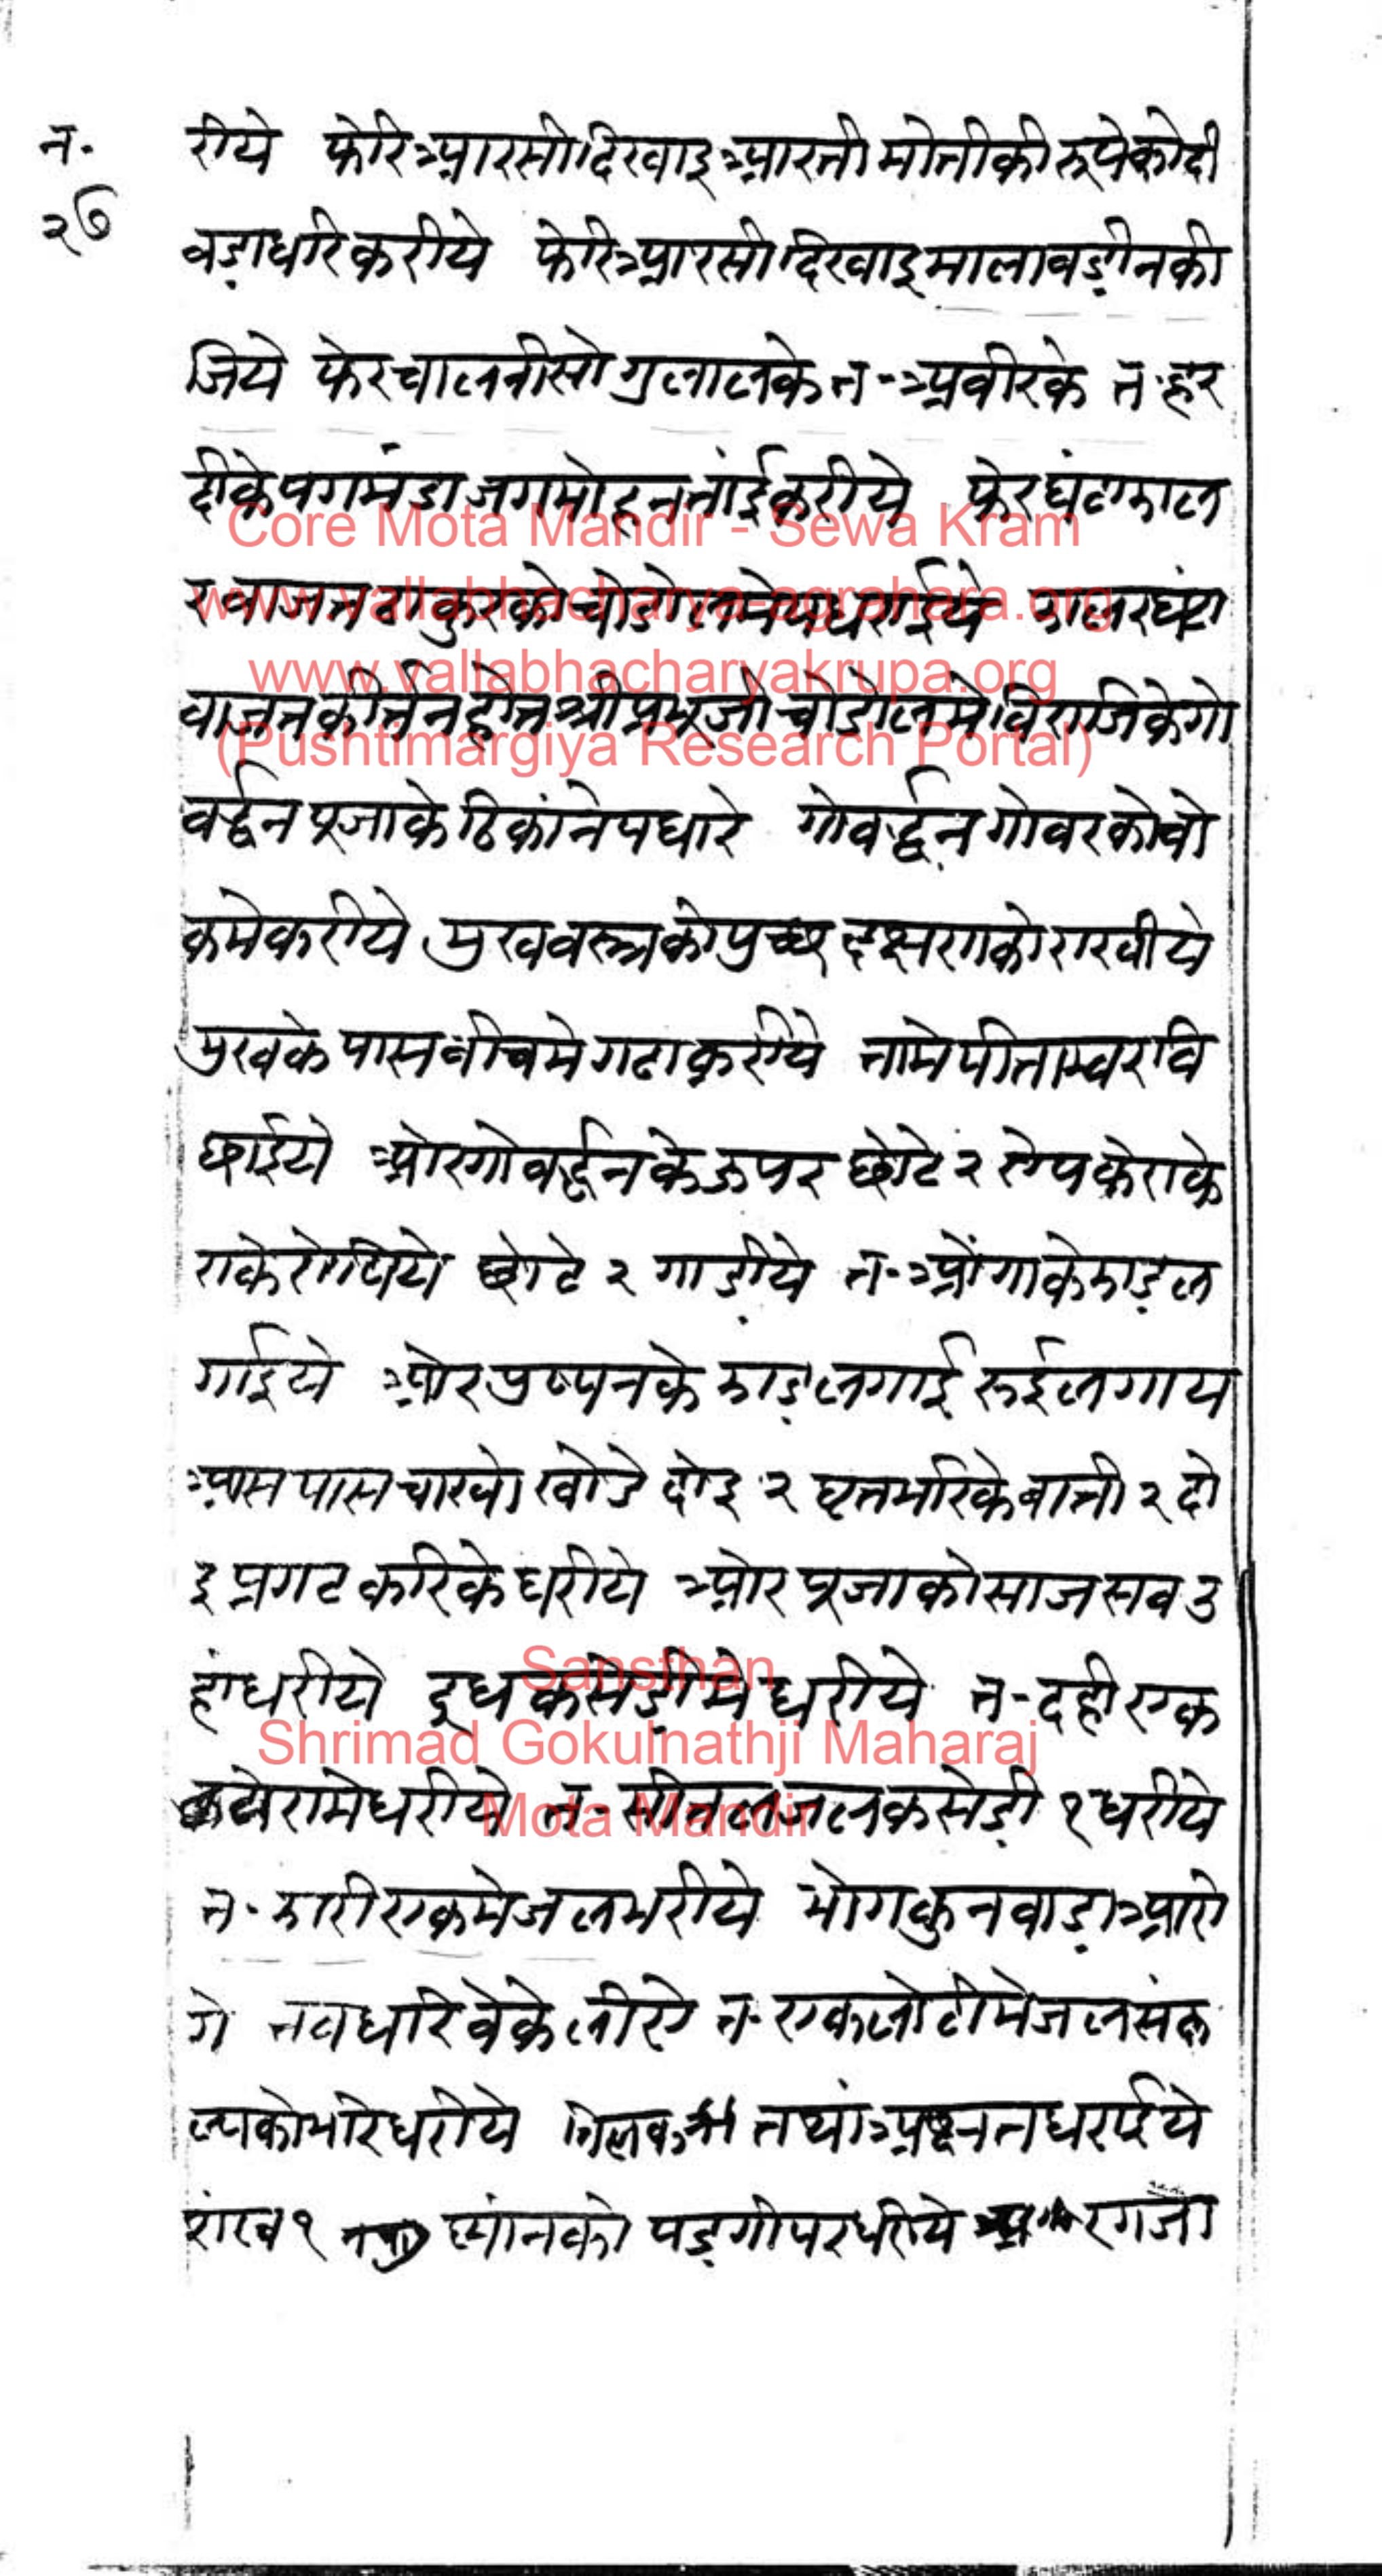 न॰
२७
रीये फेरि आरसी दिखाइ आरती मोतीकी रूपेकी दी
वडा धरि करीये फेरि आरसी दिखाइ माला वडी न की
जिये फेर चालनीसो गुलालके त॰ अवीरके त॰ हर
दीके पगमंडा जगमोहन तांई करीये फेर घंटा झाल
र वाजत ठाकुरको चोडोलमे पधराईये झालर घंटा
वाजत कीर्तन होत श्रीप्रभुजी चोडोलमे विराजिके गो
वर्द्धन पूजाके ठिकांने पधारे गोवर्द्धन गोवरको चो
कमे करीये मुख वस्त्रको पुच्छ दक्षणको राखीये
मुखके पास वीचमे गढा करीये तामे पीताम्वर वि
छाईये ओर गोवर्द्धनके ऊपर छोटे २ रोप केराके
राके रोपीये छोटे २ गाडीये त॰ ओंगाके झाड ल
गाईये ओर पुष्पनके झाड लगाई रूई लगाय
आस पास चारयो खोडे दोइ २ घृत भरिके वाती २ दो
इ प्रगट करिके धरीये ओर पूजाको साज सव उ
हां धरीये दूध कसेडीमे धरीये त॰ दही एक
कटोरामे धरीये त॰ सीतल जल कसेडी १ धरीये
त॰ झारी एकमे जल भरीये भोग कुनवाडा आरो
गे तव धरिवेके लीए त॰ एक लोटीमे जल संक
ल्पको भरि धरीये तिलक तथां अक्षत धरईये
शंख १ स्नांनको पडगी पर धरीये अरगजा
Core Mota Mandir - Sewa Kram
www.vallabhacharya-agrahara.org
www.vallabhacharyakrupa.org
(Pushtimargiya Research Portal)
Sansthan
Shrimad Gokulnathji Maharaj
Mota Mandir